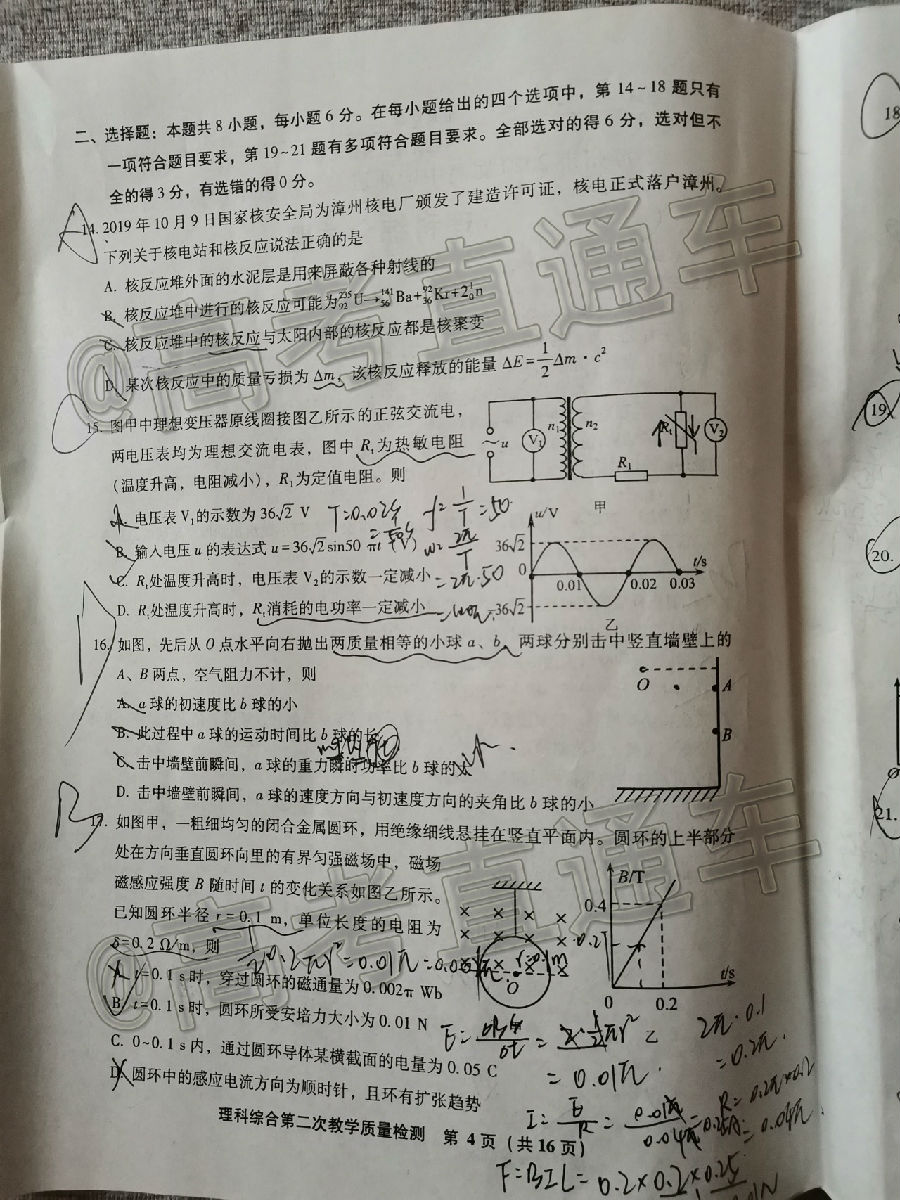 二、选择题：本题共8小题，每小题6分。在每小题给出的四个选项中，第14~18题只有
一项符合题目要求，第19~21题有多项符合题目要求。全部选对的得6分，选对但不
全的得3分，有选错的得0分。
A
14.2019年10月9日国家核安全局为漳州核电厂颁发了建造许可证，核电正式落户漳州。
下列关于核电站和核反应说法正确的是
A. 核反应堆外面的水泥层是用来屏蔽各种射线的
B. 核反应堆中进行的核反应可能为²³⁵₉₂U→¹⁴¹₅₆Ba+⁹²₃₆Kr+2¹₀n
C. 核反应堆中的核反应与太阳内部的核反应都是核聚变
D. 某次核反应中的质量亏损为Δm，该核反应释放的能量ΔE=1/2Δm·c²
15. 图甲中理想变压器原线圈接图乙所示的正弦交流电，
两电压表均为理想交流电表，图中R₁为热敏电阻
（温度升高，电阻减小），R₁为定值电阻。则
~u V₁ n₁ n₂ R₁ V₂
R₁
甲
A. 电压表V₁的示数为36√2 V
T=0.02s f=1/T=50
B. 输入电压u的表达式u=36√2sin50πt（V）
ω=2π/T
C. R₁处温度升高时，电压表V₂的示数一定减小
=2π·50
D. R₁处温度升高时，R₁消耗的电功率一定减小
u/V
36√2
0 0.01 0.02 0.03 t/s
-36√2
乙
D
16. 如图，先后从O点水平向右抛出两质量相等的小球a、b，两球分别击中竖直墙壁上的
A、B两点，空气阻力不计，则
A. a球的初速度比b球的小
B. 此过程中a球的运动时间比b球的长
C. 击中墙壁前瞬间，a球的重力瞬时功率比b球的大
D. 击中墙壁前瞬间，a球的速度方向与初速度方向的夹角比b球的小
O A
B
B
17. 如图甲，一粗细均匀的闭合金属圆环，用绝缘细线悬挂在竖直平面内。圆环的上半部分
处在方向垂直圆环向里的有界匀强磁场中，磁场
磁感应强度B随时间t的变化关系如图乙所示。
已知圆环半径r=0.1 m，单位长度的电阻为
δ=0.2 Ω/m，则
A. t=0.1 s时，穿过圆环的磁通量为0.002π Wb
B. t=0.1 s时，圆环所受安培力大小为0.01 N
C. 0~0.1 s内，通过圆环导体某横截面的电量为0.05 C
D. 圆环中的感应电流方向为顺时针，且环有扩张趋势
O
B/T
0.4
0.2
0 0.2 t/s
2π·0.1
=0.2π.
=0.01π.
F=BIL=0.2×0.2×0.25
理科综合第二次教学质量检测 第4页（共16页）
18
19.
20.
21.
@高考直通车
@高考直通车